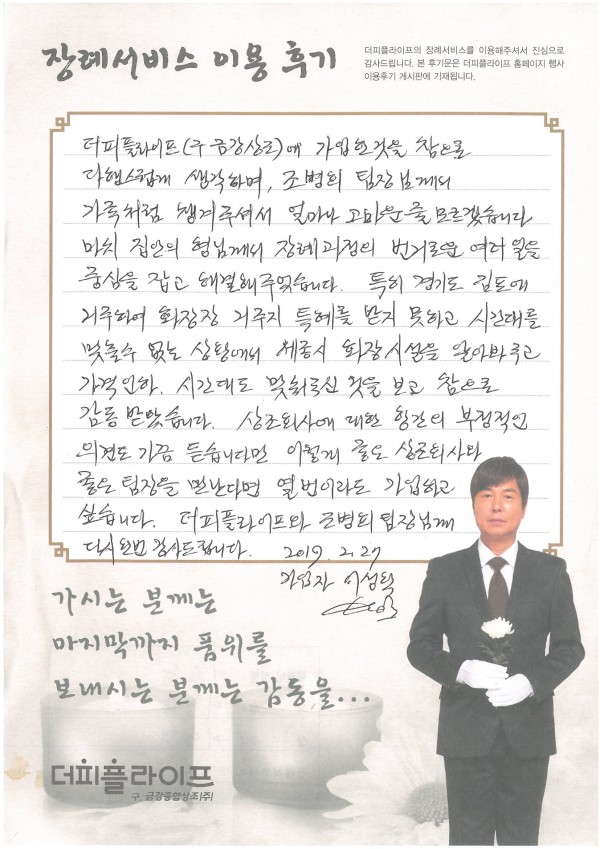 장례서비스 이용 후기
더피플라이프의 장례서비스를 이용해주셔서 진심으로
감사드립니다. 본 후기문은 더피플라이프 홈페이지 행사
이용후기 게시판에 기재됩니다.
더피플라이프(구 금강상조)에 가입한것을 참으로
다행스럽게 생각하며, 조병희 팀장님께서
가족처럼 챙겨주셔서 얼마나 고마운줄 모르겠습니다
마치 집안의 형님께서 장례과정의 번거로운 여러일을
중심을 잡고 해결해주었습니다. 특히 경기도 김포에
거주하여 화장장 거주지 특혜를 받지 못하고 시간대를
맞출수 없는 상황에서 세종시 화장시설을 알아봐주고
가격인하, 시간대도 맞춰주신 것을 보고 참으로
감동 받았습니다. 상조회사에 대한 항간의 부정적인
의견도 가끔 듣습니다만 이렇게 좋은 상조회사와
좋은 팀장을 만난다면 열번이라도 가입하고
싶습니다. 더피플라이프와 조병희팀장님께
다시한번 감사드립니다. 2019. 2. 27
가입자 이성혁
가시는 분께는
마지막까지 품위를
보내시는 분께는 감동을...
더피플라이프
구. 금강종합상조(주)